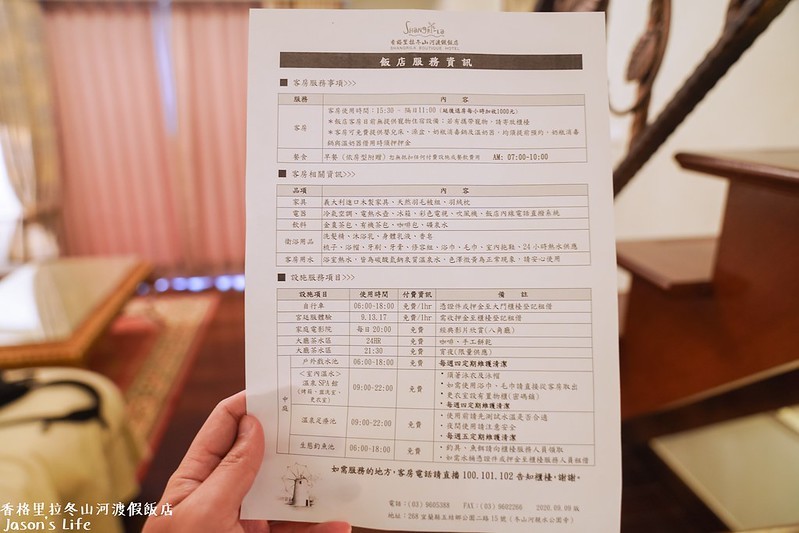 Shangrila
香格里拉冬山河渡假飯店
SHANGRILA BOUTIQUE HOTEL
飯店服務資訊
■ 客房服務事項>>>
服務 內容
客房 客房使用時間：15:30 - 隔日11:00 (逾後退房每小時加收1000元)
＊飯店客房目前無提供寵物住宿設備；若有攜帶寵物，請寄放櫃檯
＊客房可免費提供嬰兒床、澡盆、奶瓶消毒鍋及溫奶器，均須提前預約，奶瓶消毒
鍋與溫奶器借用時須押押金
餐食 早餐 (依房型附贈) 恕無抵扣任何付費設施或餐飲費用 AM: 07:00-10:00
■ 客房相關資訊>>>
品項 內容
家具 義大利進口木製家具、天然羽毛被組、羽絨枕
電器 冷氣空調、電熱水壺、冰箱、彩色電視、吹風機、飯店內線電話直撥系統
飲料 金棗茶包、有機茶包、咖啡包、礦泉水
衛浴用品 洗髮精、沐浴乳、身體乳液、香皂
梳子、浴帽、牙刷、牙膏、修容組、浴巾、毛巾、室內拖鞋、24小時熱水供應
客房用水 浴室熱水，皆為碳酸氫鈉泉質溫泉水，色澤微黃為正常現象，請安心使用
■ 設施服務項目>>>
設施項目 使用時間 付費資訊 備註
自行車 06:00-18:00 免費/1hr 憑證件或押金至大門櫃檯登記租借
宮廷服體驗 9.13.17 免費/1hr 需收押金至櫃檯登記租借
家庭電影院 每日20:00 免費 經典影片欣賞(八角廳)
大廳茶水區 24HR 免費 咖啡、手工餅乾
大廳茶水區 21:30 免費 宵夜(限量供應)
中庭
戶外戲水池 06:00-18:00 免費 每週四定期維護清潔
＜室內溫水＞
溫泉SPA館
(烤箱、蒸氣室、
更衣室) 09:00-22:00 免費 ・須著泳衣及泳帽
・如需使用浴巾、毛巾請直接從客房取出
・更衣室設有置物櫃(密碼鎖)
・每週四定期維護清潔
溫泉足湯池 09:00-22:00 免費 ・使用前請先測試水溫是否合適
・夜間使用請注意安全
・每週五定期維護清潔
生態釣魚池 06:00-18:00 免費 ・釣具、魚餌請向櫃檯服務人員領取
・如需水桶憑證件或押金至櫃檯服務人員租借
如需服務的地方，客房電話請直撥 100.101.102 告知櫃檯，謝謝。
電話：(03) 9605388 FAX：(03) 9602266 2020.09.09版
地址：268 宜蘭縣五結鄉公園二路15號 (冬山河親水公園旁)
香格里拉冬山河渡假飯店
Jason's Life